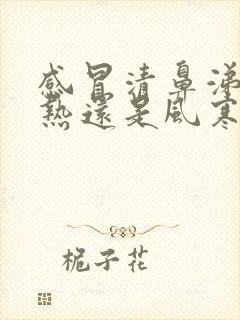 感冒清鼻涕
熱還是風寒
栀子花